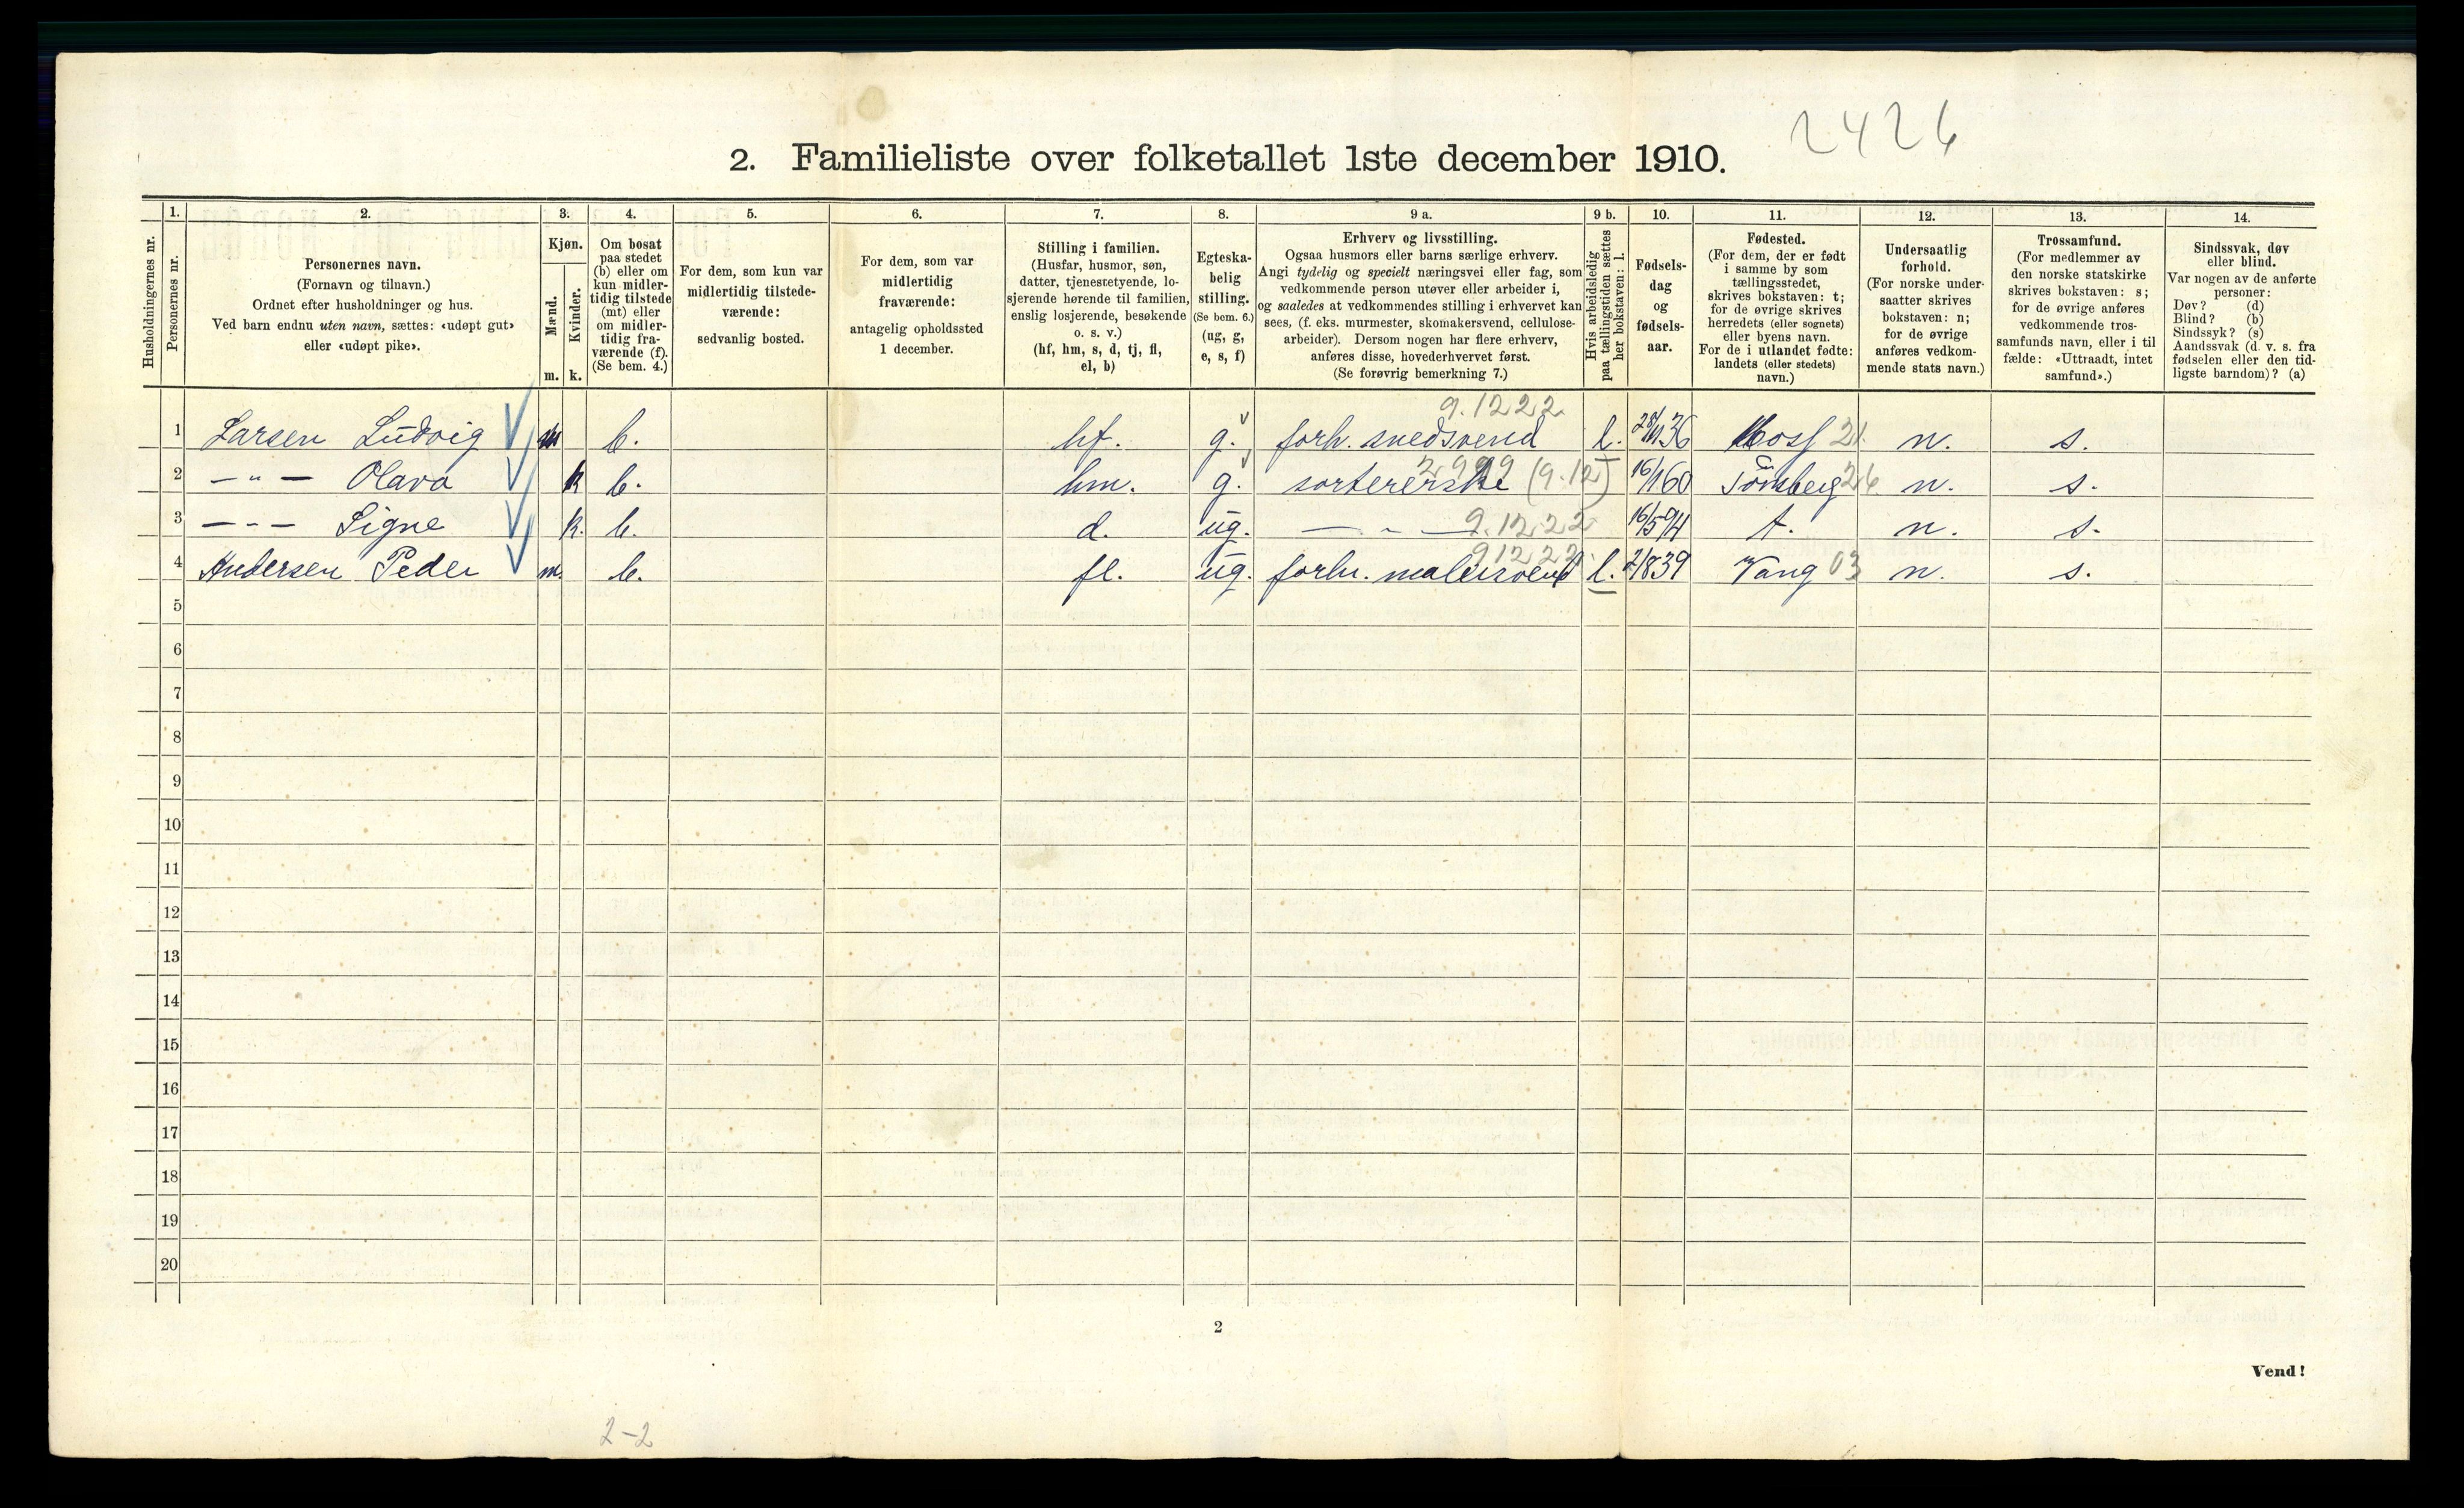 2426
2. Familieliste over folketallet 1ste december 1910.
Husholdningernes nr.
1. Personernes nr.
2. Personernes navn.
(Fornavn og tilnavn.)
Ordnet efter husholdninger og hus.
Ved barn endnu uten navn, sættes: «udøpt gut»
eller «udøpt pike».
3. Kjøn.
Mænd. m.
Kvinder. k.
4. Om bosat
paa stedet
(b) eller om
kun midler-
tidig tilstede
(mt) eller
om midler-
tidig fra-
værende (f).
(Se bem. 4.)
5. For dem, som kun var
midlertidig tilstede-
værende:
sedvanlig bosted.
6. For dem, som var
midlertidig
fraværende:
antagelig opholdssted
1 december.
7. Stilling i familien.
(Husfar, husmor, søn,
datter, tjenestetyende, lo-
sjerende hørende til familien,
enslig losjerende, besøkende
o. s. v.)
(hf, hm, s, d, tj, fl,
el, b)
8. Egteska-
belig
stilling.
(Se bem. 6.)
(ug, g,
e, s, f)
9 a. Erhverv og livsstilling.
Ogsaa husmors eller barns særlige erhverv.
Angi tydelig og specielt næringsvei eller fag, som
vedkommende person utøver eller arbeider i,
og saaledes at vedkommendes stilling i erhvervet kan
sees, (f. eks. murmester, skomakersvend, cellulose-
arbeider). Dersom nogen har flere erhverv,
anføres disse, hovederhvervet først.
(Se forøvrig bemerkning 7.)
9 b. Hvis arbeidsledig
paa tællingstiden sættes
her bokstaven: l.
10. Fødsels-
dag
og
fødsels-
aar.
11. Fødested.
(For dem, der er født
i samme by som
tællingsstedet,
skrives bokstaven: t;
for de øvrige skrives
herredets (eller sognets)
eller byens navn.
For de i utlandet fødte:
landets (eller stedets)
navn.)
12. Undersaatlig
forhold.
(For norske under-
saatter skrives
bokstaven: n;
for de øvrige
anføres vedkom-
mende stats navn.)
13. Trossamfund.
(For medlemmer av
den norske statskirke
skrives bokstaven: s;
for de øvrige anføres
vedkommende tros-
samfunds navn, eller i til
fælde: «Uttraadt, intet
samfund».)
14. Sindssvak, døv
eller blind.
Var nogen av de anførte
personer:
Døv? (d)
Blind? (b)
Sindssyk? (s)
Aandssvak (d. v. s. fra
fødselen eller den tid-
ligste barndom)? (a)
9.1222
1 Larsen Ludvig m b. hf. g. forh. snedsvend l. 36 Moss 21 n. s.
2 — " — Olava k b. hm. g. sortererske 2999 (9.12) 16/1 60 Tönsberg 26 n. s.
3 — " — Signe k. b. d. ug. — " — 9.1222 16/5 94 t. n. s.
4 Andersen Peder m. b. fl. ug. forh. malersvend 91222 l. 2/8 39 Vang 03 n. s.
5
6
7
8
9
10
11
12
13
14
15
16
17
18
19
20
2
Vend!
2-2